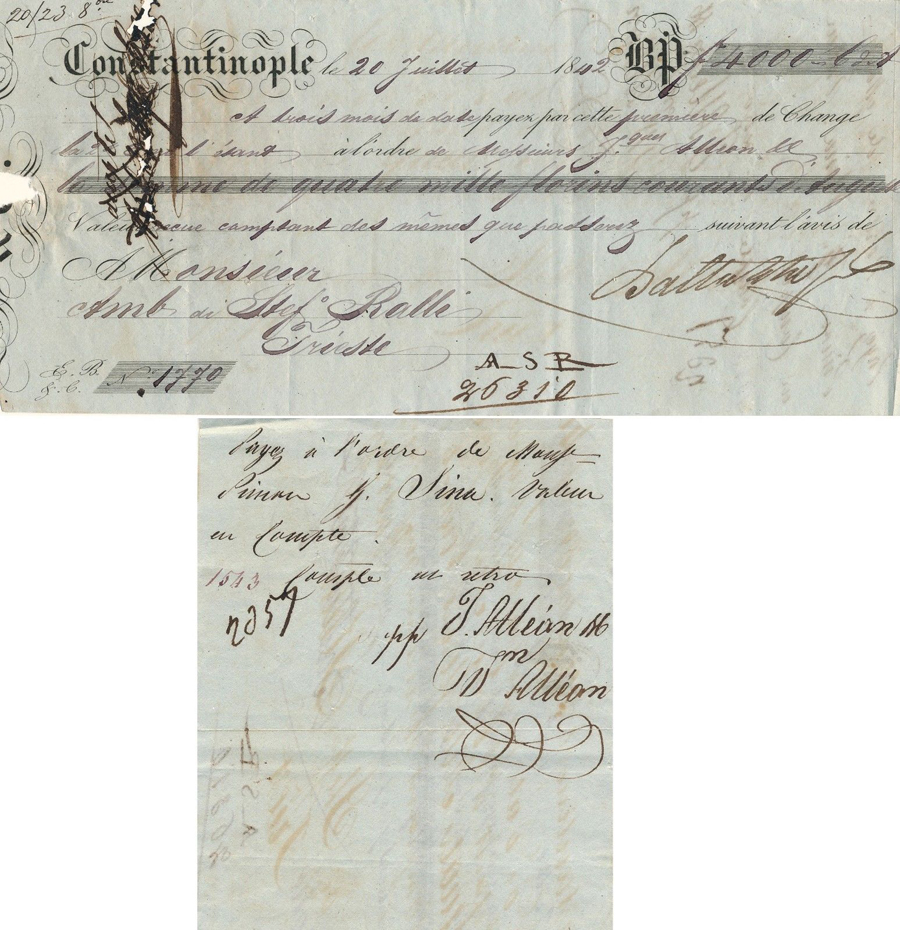 20/23 8
Constantinople le 20 Juillet 1842 BP f 4000
A trois mois de date payez par cette première de Change
l'étant à l'ordre de Messieurs J.ques Alléon
la somme de quatre mille florins courants
Valeur reçue comptant des mêmes que passerez suivant l'avis de
A Monsieur
Amb di Stef.o Ralli
Trieste
ASR
26310
E. B.
& C. No. 1770
Payez à l'ordre de
Simon G. Sina. Valeur
en Compte.
1543 Compte ut retro
2257
pp J. Alléon
Alléon